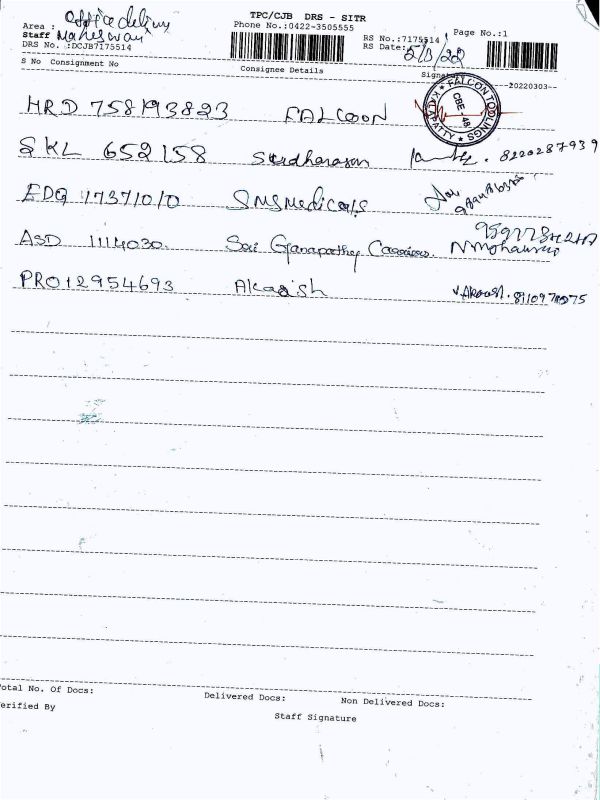 TPC/CJB DRS - SITR
Area : Office delivery
Phone No.:0422-3505555
Page No.:1
Staff Maheswari
RS No.:7175514
DRS No. :DCJB7175514
RS Date: 5/3/22
S No Consignment No
Consignee Details
Signat
--20220303--
HRD 758193823 FALCOON
FALCON TOOLINGS
CBE - 48
KALAPATTY
SKL 652158 Sudharasan 8220287939
EDQ 17371010 SMS Medicals
ASD 1114030 Sai Ganapathy
N Mohan
PRO 12954693 Akaash
V. Akaash.
Total No. Of Docs:
Delivered Docs:
Non Delivered Docs:
Verified By
Staff Signature